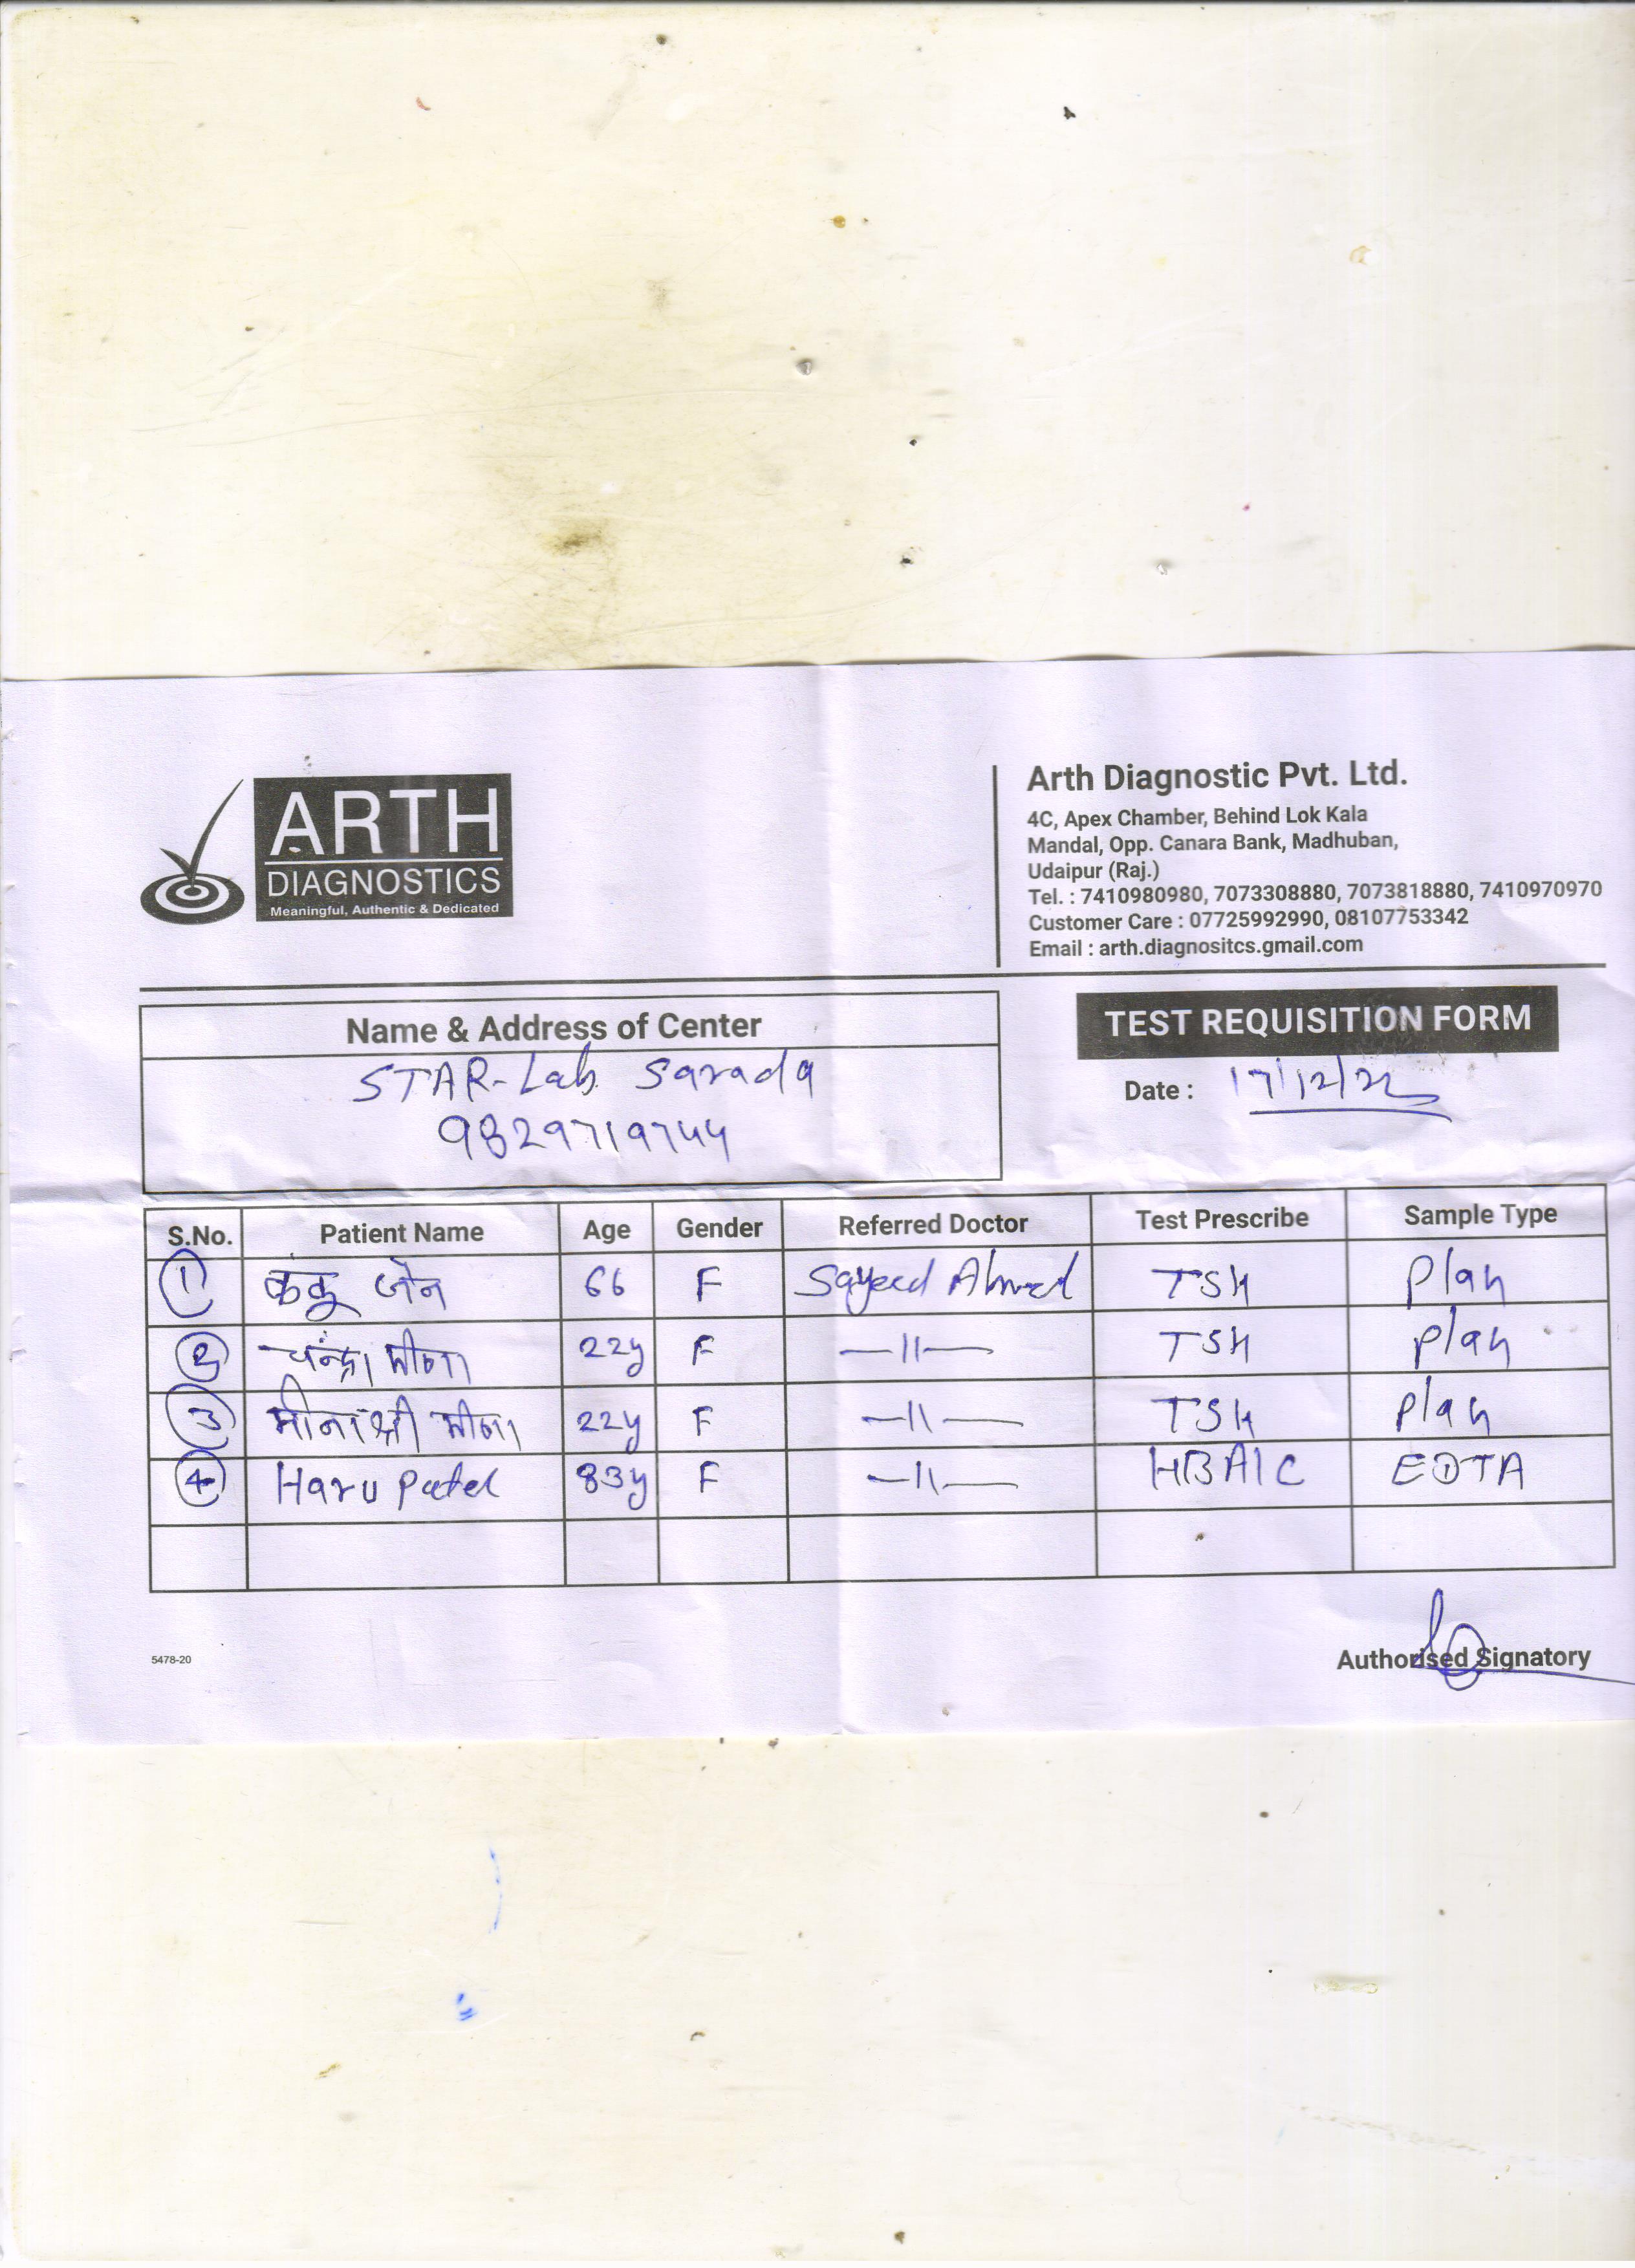 ARTH
DIAGNOSTICS
Meaningful, Authentic & Dedicated
Arth Diagnostic Pvt. Ltd.
4C, Apex Chamber, Behind Lok Kala
Mandal, Opp. Canara Bank, Madhuban,
Udaipur (Raj.)
Tel. : 7410980980, 7073308880, 7073818880, 7410970970
Customer Care : 07725992990, 08107753342
Email : arth.diagnositcs.gmail.com
Name & Address of Center
STAR-Lab Sarada
9829719744
TEST REQUISITION FORM
Date : 17/12/22
S.No. Patient Name Age Gender Referred Doctor Test Prescribe Sample Type
1 कंकू जैन 66 F Sayeed Ahmed TSH Plan
2 चन्द्रा मीणा 22y F —11— TSH Plan
3 मीनाश्री मीणा 22y F —11— TSH Plan
4 Haru Patel 83y F —11— HBA1C EDTA
5478-20
Authorised Signatory